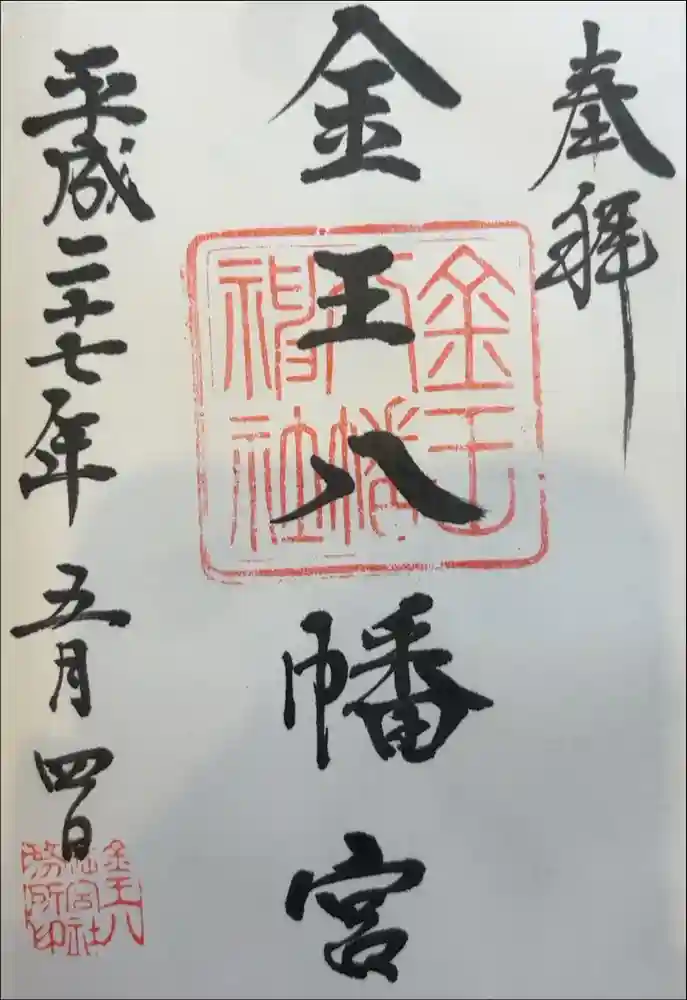 奉拝
金王八幡宮
金王八幡神社
平成二十七年五月四日
金王八
幡宮社
務所印